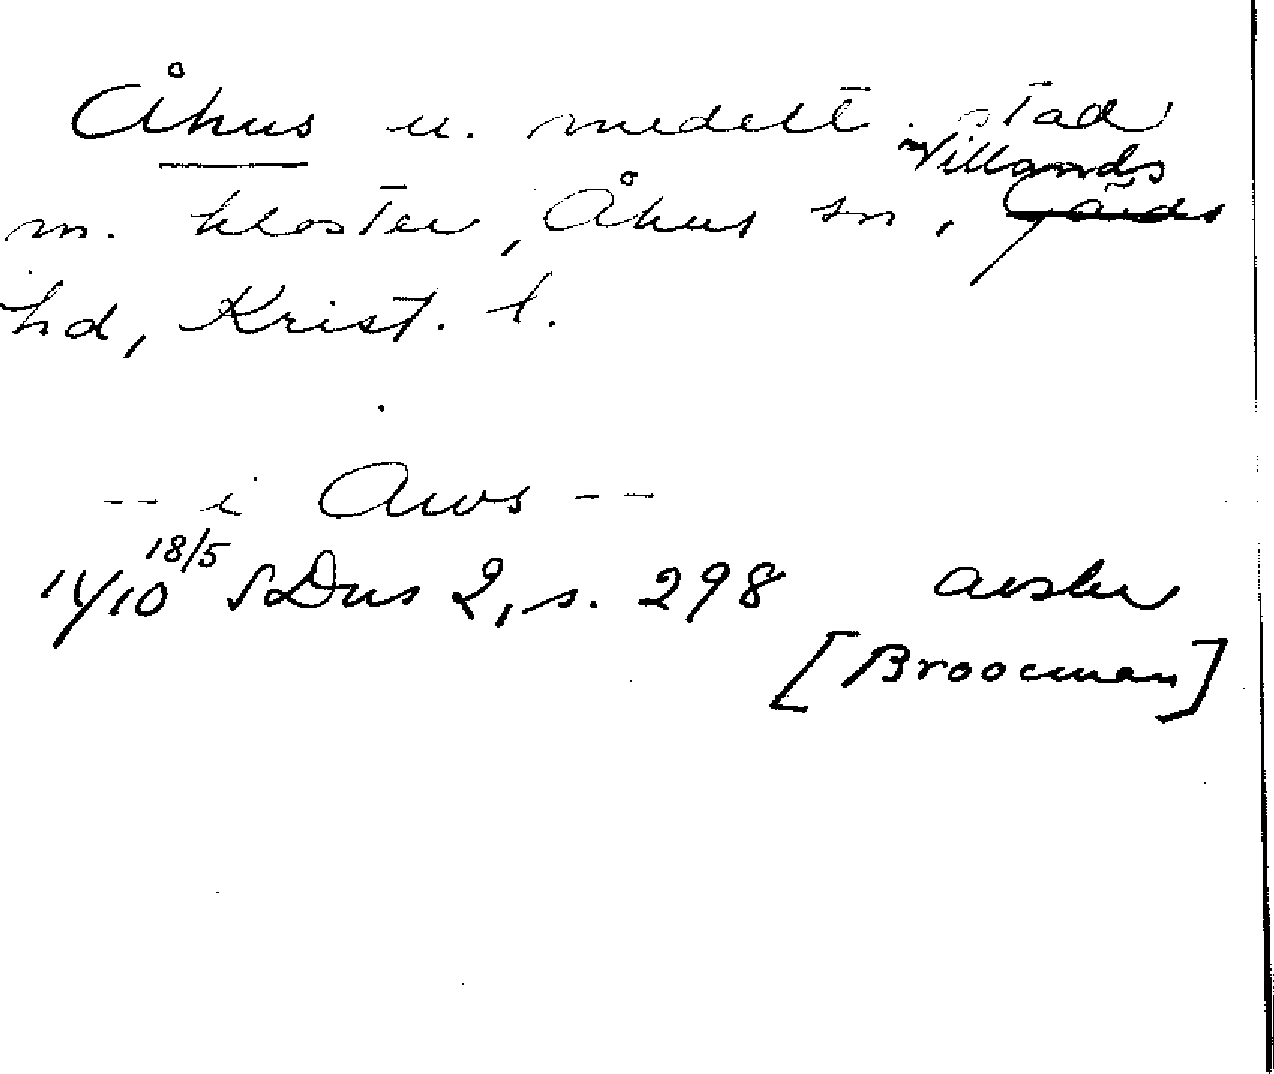 Åhus u. medelt. stad
m. kloster, Åhus sn, Villands
hd, Krist. l.
-- i Aws --
14/10 18/5 SDns 2, s. 298 avskr
[Broocman]